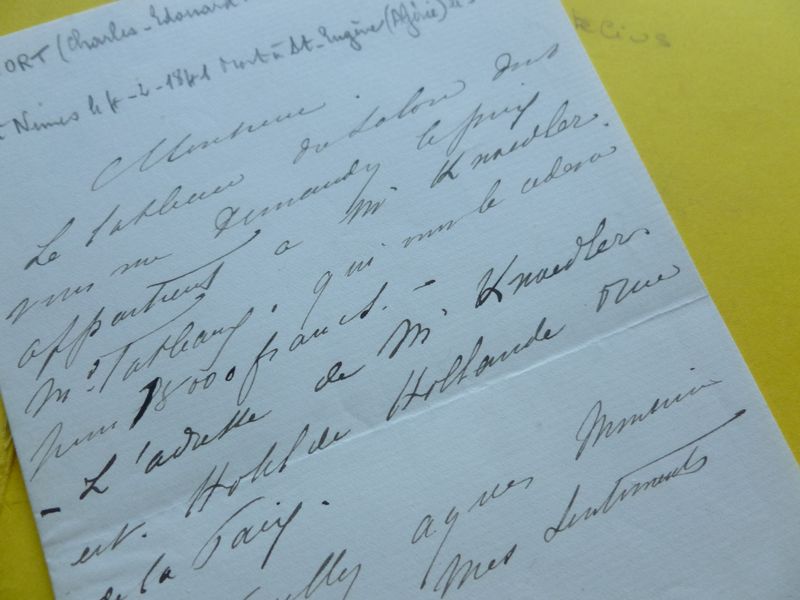 ORT (Charles-Edouard
à Nimes le 4-2-1841 Mort à St-Eugène (Algérie) le
Monsieur.
Le tableau du Salon dont
vous me demandez le prix
appartient a Mr Knoedler.
Md Tableaux. qui vous le cedera
pour 18000 francs. -
- L'adresse de Mr Knoedler
est. Hotel de Hollande rue
de la Paix.
agréez Monsieur
mes Sentiments